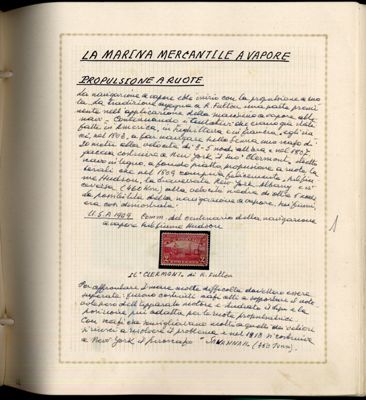 LA MARINA MERCANTILE A VAPORE
PROPULSIONE A RUOTE
La navigazione a vapore ebbe inizio con la propulsione a ruo
la tradizione assegna a R. Fulton una parte premi
nente nell'applicazione della macchina a vapore alle
navi. Continuando i tentativi che erano già stati
fatti in America, in Inghilterra e in Francia, egli riu
cì, nel 1803, a far navigare sulla Senna uno scafo di
20 metri alla velocità di 3-5 nodi all'ora e nel 1807
faceva costruire a New York il "Clermont", dalla
nave in legno, a fondo piatto propulsione a ruote la
terali che nel 1809 compiva felicemente, sul fiu
me Hudson, la traversata New York Albany e vi
ceversa (460 Km) alla velocità media di oltre 5 nodi
la possibilità della navigazione a vapore sui fiumi
era così dimostrata.
U.S.A 1909. Comm. del centenario della navigazione
a vapore sul fiume Hudson
1
2
IL "CLERMONT" di R. Fulton
Per affrontare il mare molte difficoltà dovettero essere
superate: furono costruiti scafi atti a sopportare il moto
ondoso, dell'apparato motore e studiato il tipo e la
posizione più adatta per le ruote propulsatrici.
Con scafi che somigliavano molto a quelli dei velieri
si riuscì a risolvere il problema e nel 1818 si costruiva
a New York il piroscafo "SAVANNAH" (350 Tonn).